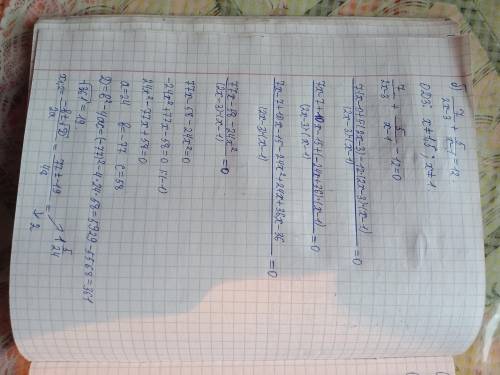 б) 7/(2x-3) + 5/(x-1) = 12
ОДЗ: x ≠ 1,5 ; x ≠ 1
7/(2x-3) + 5/(x-1) - 12 = 0
(7(x-1)+5(2x-3)-12(2x-3)·(x-1))/((2x-3)·(x-1)) = 0
(7x-7+10x-15+(-24x+36)·(x-1))/((2x-3)·(x-1)) = 0
(7x-7+10x-15-24x²+24x+36x-36)/((2x-3)·(x-1)) = 0
(77x-58-24x²)/((2x-3)·(x-1)) = 0
77x-58-24x²=0
-24x²+77x-58=0 |·(-1)
24x²-77x+58=0
a=24 b=-77 c=58
D=b²-4ac=(-77)²-4·24·58=5929-5568=361
√361=19
x₁,₂ = (-b±√D)/2a = (77±19)/48 = 1 5/24
2